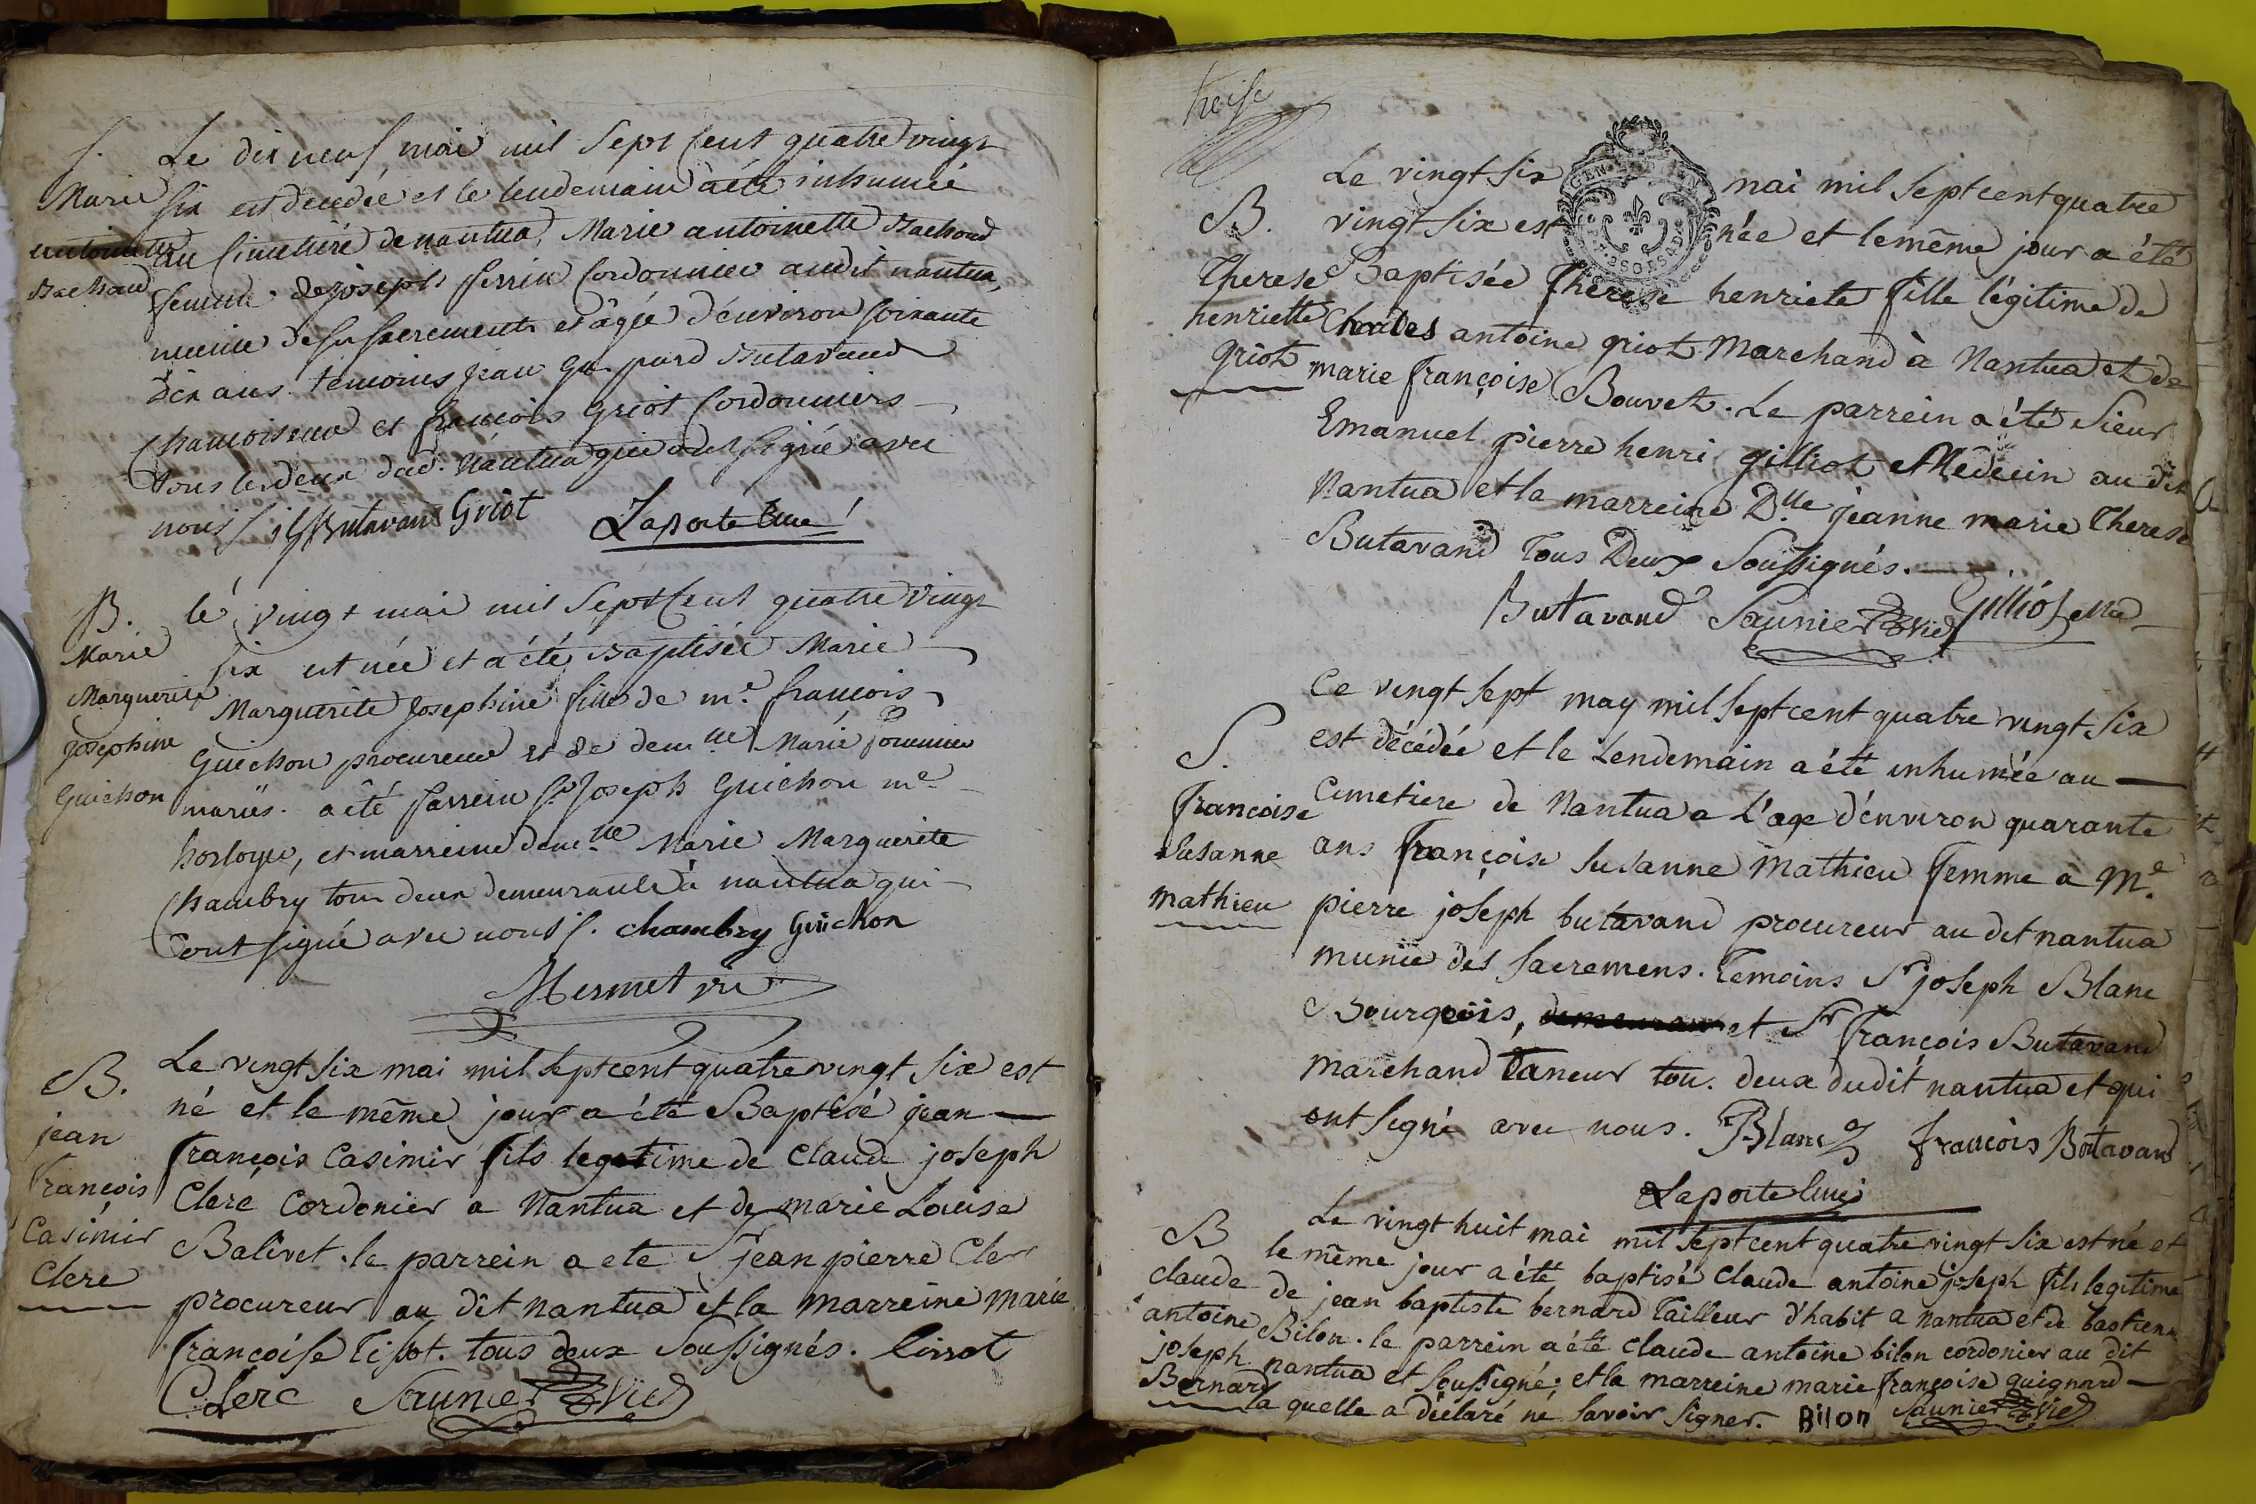 S.
Marie
antoinette
Bachoud
Le dix neuf mai mil sept cent quatre vingt
six est decedée et le lendemain a été inhumée
au Cimetiére de nantua, Marie antoinette Bachoud
femme de joseph perrin Cordonnier audit nantua,
munie des sacrements et âgée d'environ soixante
dix ans. temoins jean gaspard Butavand
Chamoiseur et francois Griot Cordonniers
tous les deux dud. Nantua qui ont signé avec
nous Butavand Griot Laporte Curé
B.
Marie
Marguerite
Josephine
Guichon
le vingt mai mil sept cent quatre vingt
six est née et a été Baptisée Marie
Marguerite Josephine fille de me. francois
Guichon procureur et de demlle Marie
mariés. a été parrein Sr Joseph Guichon me
horloger, et marreine demlle Marie Marguerite
Chambry tous deux demeurants à nantua qui
ont signé avec nous. chambry Guichon
Mermet vic
B.
jean
françois
Casimir
Clerc
Le vingt six mai mil sept cent quatre vingt six est
né et le même jour a été Baptisé jean
françois Casimir fils legitime de Claude joseph
Clerc Cordonier a Nantua et de marie Louise
Balivet. le parrein a ete Sr jean pierre Clerc
procureur au dit nantua et la marreine marie
françoise Tissot. tous deux Soussignés. tissot
Clerc Saunier Vic
treise
B.
Therese
henriette
griot
Le vingt six mai mil sept cent quatre
vingt six est née et le même jour a été
Baptisée Therese henriete fille légitime de
Charles antoine griot Marchand à Nantua et de
marie françoise Bouvet. Le parrein a été Sieur
Emanuel pierre henri gilliot Medecin au dit
Nantua et la marreine Dlle jeanne marie Therese
Butavand Tous Deux Soussignés.
Butavand Saunier Vic Gilliot Med
S.
françoise
Susanne
Mathieu
Ce vingt sept may mil sept cent quatre vingt six
est décédée et le Lendemain a été inhumée au
Cimetiere de Nantua a l'age d'environ quarante
ans françoise Susanne Mathieu femme a Me
pierre joseph butavand procureur au dit nantua
munie des sacremens. Temoins Sr joseph Blanc
Bourgeois, et Sr françois Butavand
marchand taneur tou. deux dudit nantua et qui
ont signé avec nous. Blanc francois Butavand
Laporte Curé
B
claude
antoine
joseph
Bernard
Le vingt huit mai mil sept cent quatre vingt six est né et
le même jour a été baptisé Claude antoine joseph fils legitime
de jean baptiste bernard Tailleur d'habit a nantua et de
Bilon. le parrein a été claude antoine bilon cordonier au dit
nantua et soussigné; et la marreine marie françoise guignard
la quelle a déclaré ne savoir signer. Bilon Saunier Vic